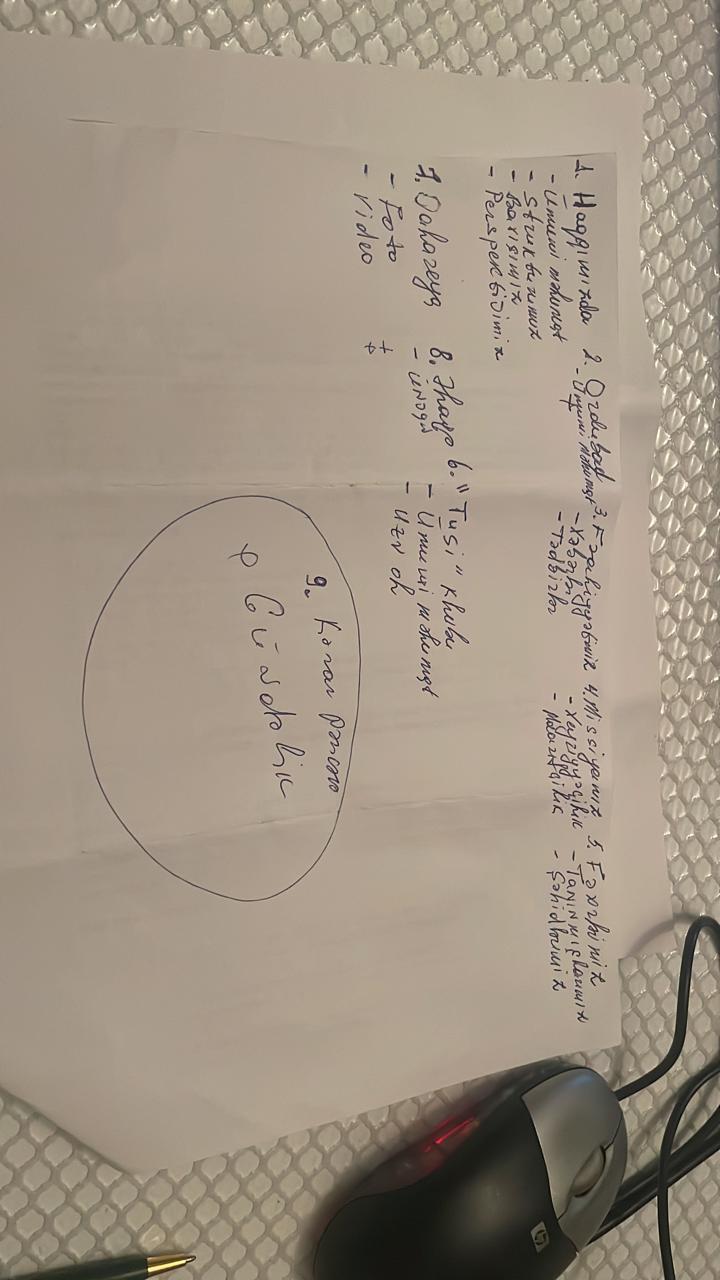 1. Haqqımızda
- Ümumi məlumat
- Strukturumuz
- Baxışımız
- Perspektivimiz
2. Ordubad
- Ümumi məlumat
+
3. Fəaliyyətimiz
- Xəbərlər
- Tədbirlər
4. Missiyamız
- Xeyriyyəçilik
- Maarifçilik
5. Fəxrlərimiz
- Tanınmışlarımız
- Şəhidlərimiz
7. Qalareya
- Foto
- Video
8. Əlaqə
- ünvan
+
+
6. "Tusi" klubu
- Ümumi məlumat
- Üzv ol
9. Kənar pəncərə
+ Gündəlik
hp